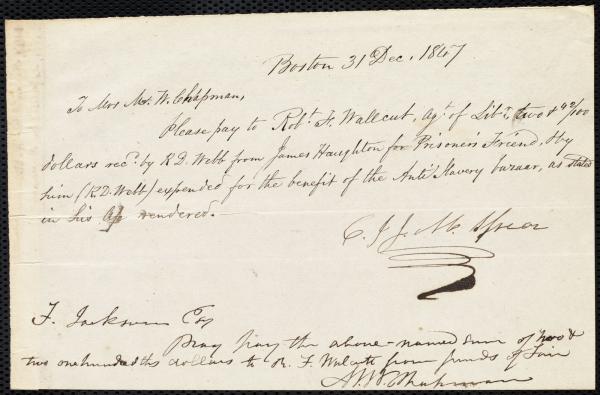 Boston 31 Dec. 1847
To Mrs M. W. Chapman,
Please pay to Robt. F. Wallcut, agt. of Libr. two & 42/100
dollars recd. by R D. Webb from James Haughton for Prisoner's Friend, & by
him (R. D. Webb) expended for the benefit of the Anti Slavery bazaar, as stated
in his rendered.
C. & J. M. Spear
F. Jackson Esq
Pray pay the above-named sum of two &
two one hundredths dollars to R. F. Walcutt from funds of Fair
M. W. Chapman